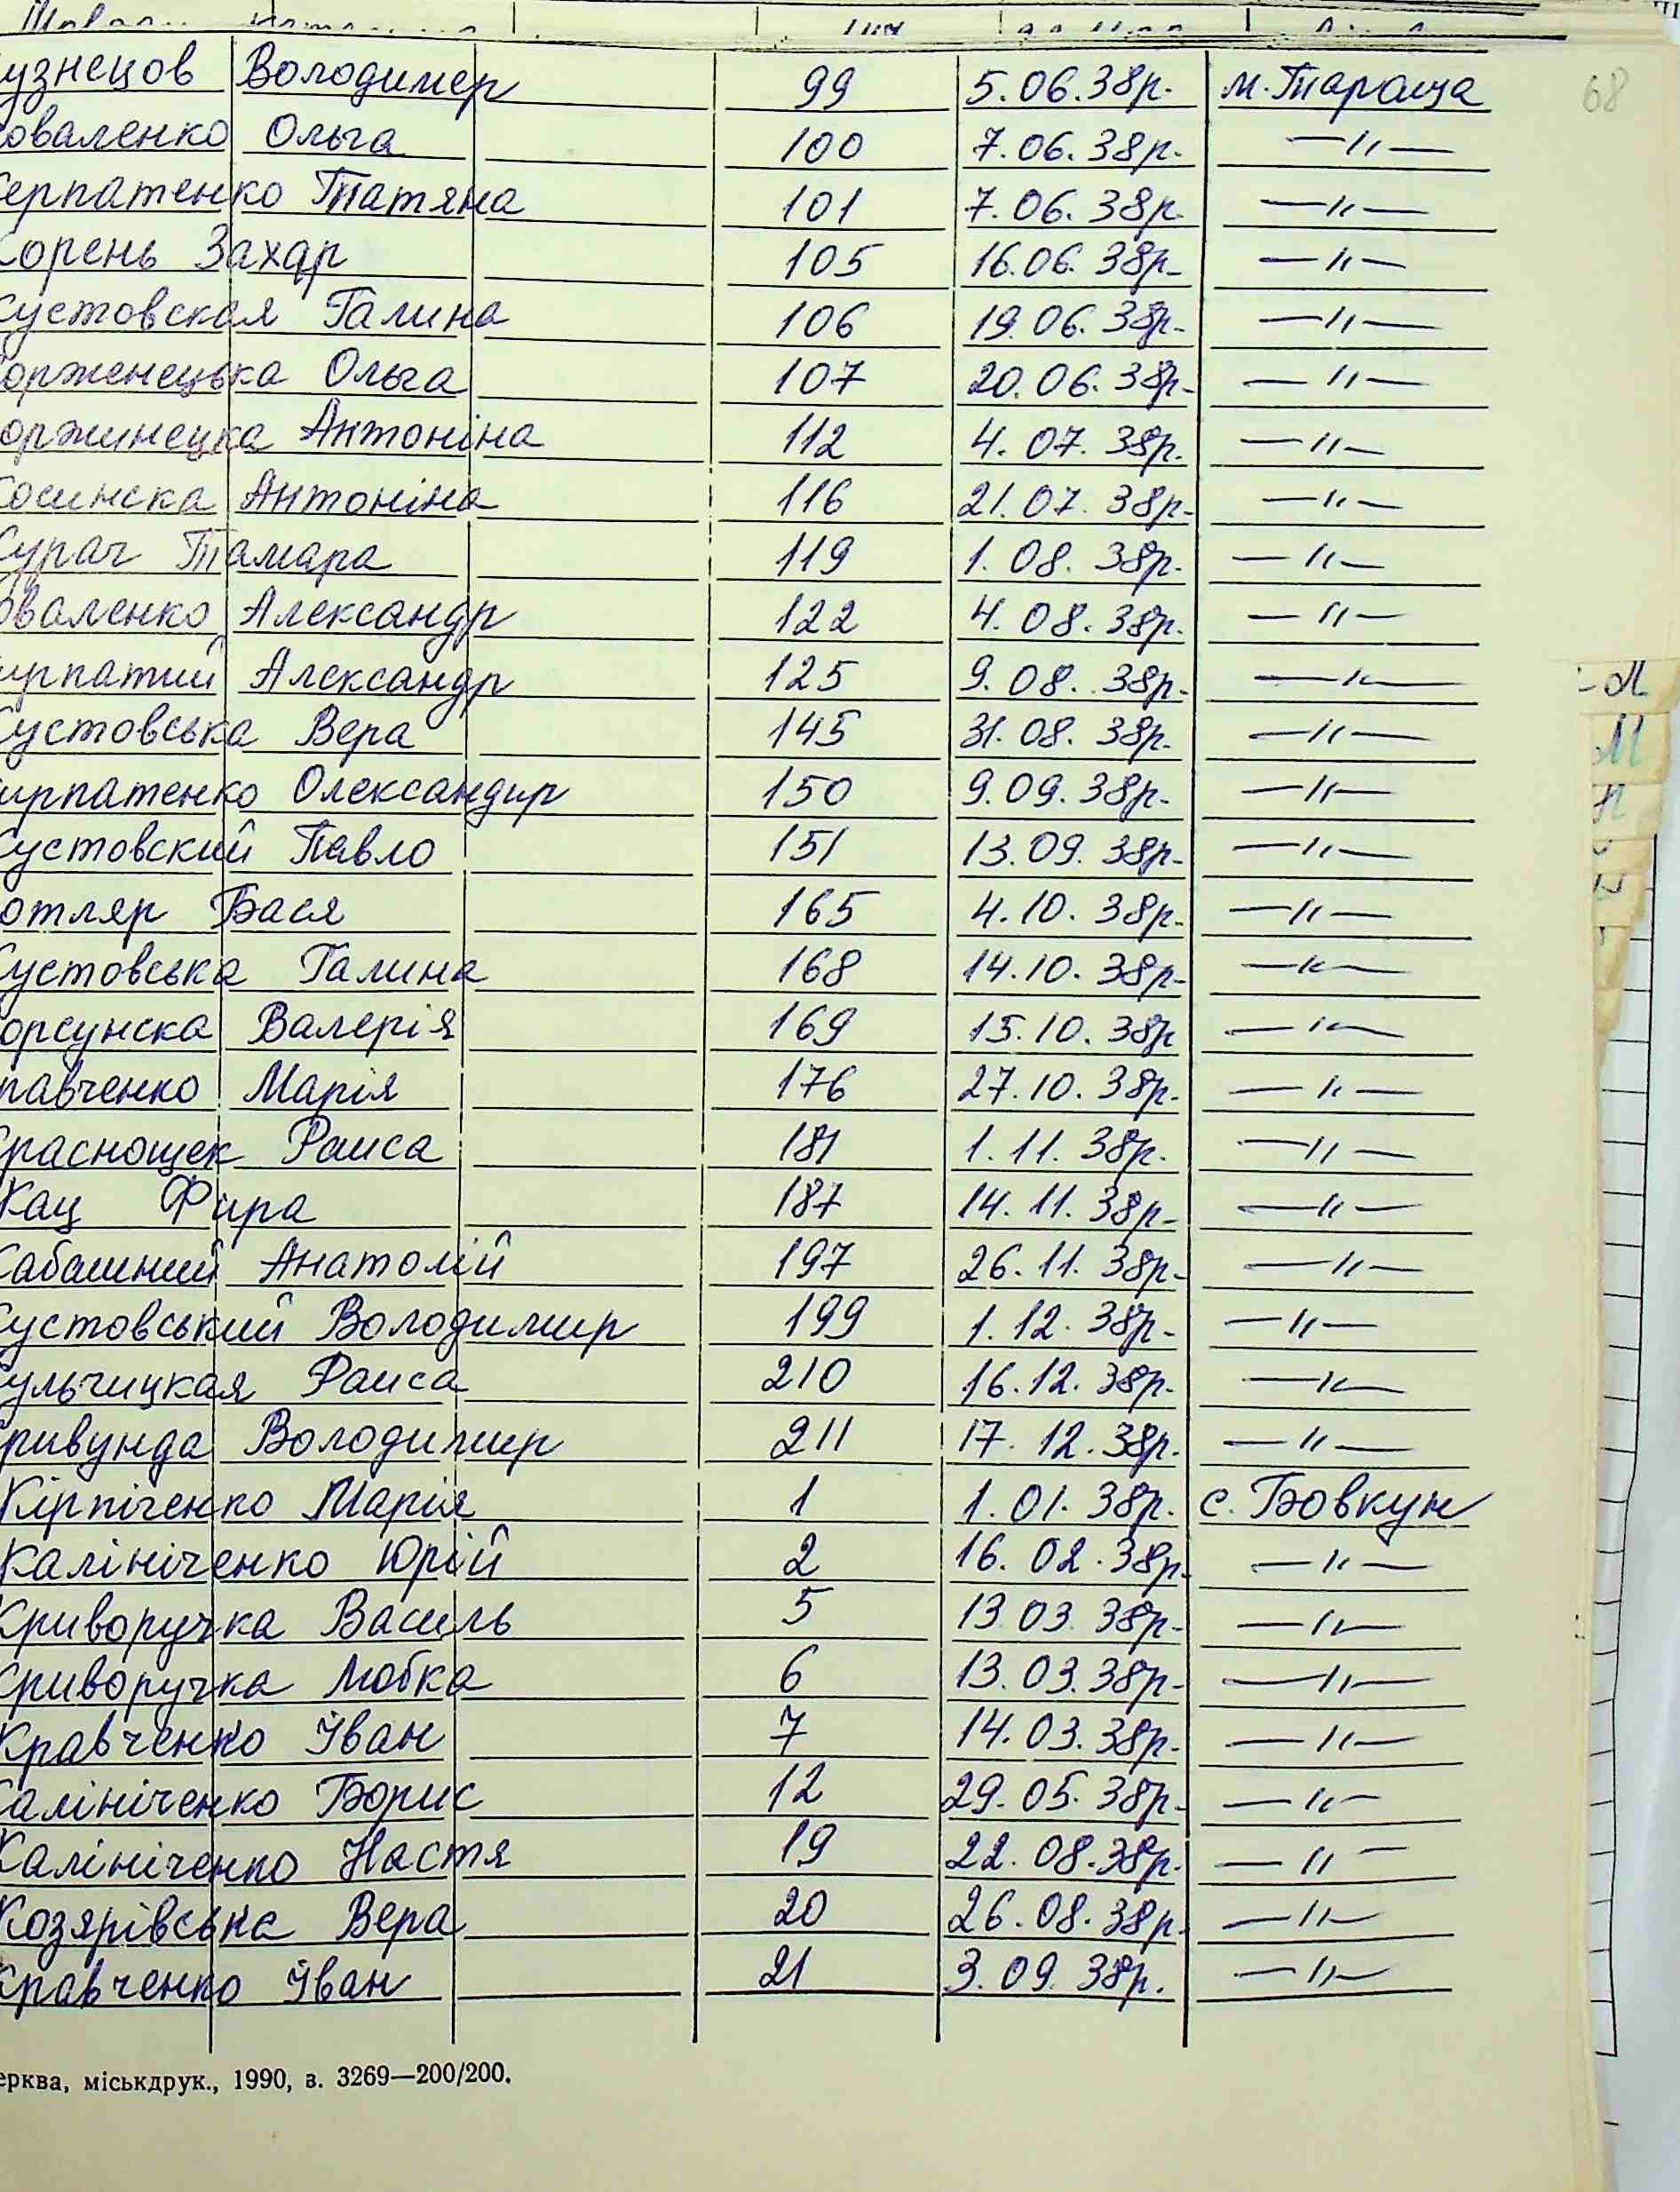 узнецов Володимер 99 5.06.38р. м. Тараща 68
оваленко Ольга 100 7.06.38р. —〃—
ерпатенко Татяна 101 7.06.38р. —〃—
Корень Захар 105 16.06.38р. —〃—
Кустовская Галина 106 19.06.38р. —〃—
орженецька Ольга 107 20.06.38р. —〃—
оржинецка Антоніна 112 4.07.38р. —〃—
Косинска Антоніна 116 21.07.38р. —〃—
Курач Тамара 119 1.08.38р. —〃—
оваленко Александр 122 4.08.38р. —〃—
ирпатий Александр 125 9.08.38р. —〃—
Кустовська Вера 145 31.08.38р. —〃—
ирпатенко Олександир 150 9.09.38р. —〃—
Кустовский Павло 151 13.09.38р. —〃—
отляр Бася 165 4.10.38р. —〃—
Кустовська Галина 168 14.10.38р. —〃—
орсунска Валерія 169 15.10.38р —〃—
равченко Марія 176 27.10.38р. —〃—
Краснощек Раиса 181 1.11.38р. —〃—
Кац Фира 187 14.11.38р. —〃—
Кабашний Анатолій 197 26.11.38р. —〃—
Кустовський Володимир 199 1.12.38р. —〃—
ульчицкая Раиса 210 16.12.38р. —〃—
ривунда Володимир 211 17.12.38р. —〃—
Кірпіченко Марія 1 1.01.38р. с. Бовкун
Калініченко Юрій 2 16.02.38р. —〃—
Криворучка Василь 5 13.03.38р. —〃—
Криворучка Любка 6 13.03.38р. —〃—
Кравченко Іван 7 14.03.38р. —〃—
Калініченко Борис 12 29.05.38р. —〃—
Калініченко Настя 19 22.08.38р. —〃—
Козярівська Вера 20 26.08.38р. —〃—
Кравченко Іван 21 3.09.38р. —〃—
ерква, міськдрук., 1990, з. 3269—200/200.